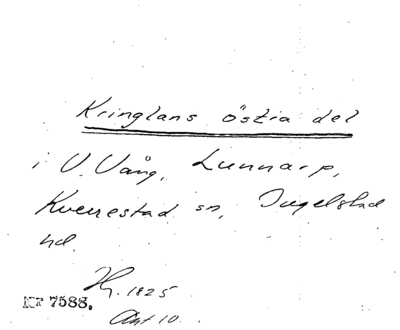 Kringlans östra del
i V. Vång, Lunnarp,
Kverrestad sn, Ingelstad
hd.
Hg. 1825
Nr 7588.
Akt 10.